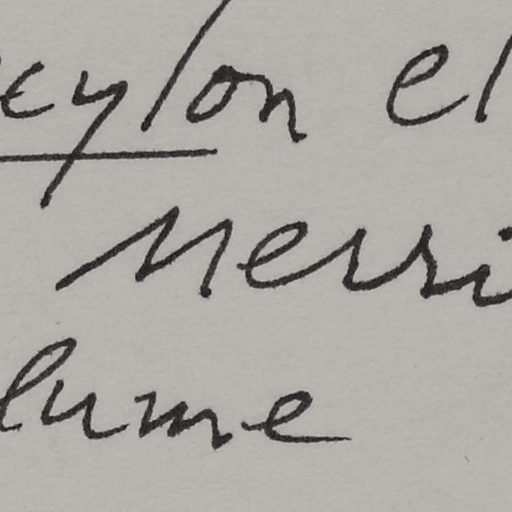 eylon el
Merri
lume